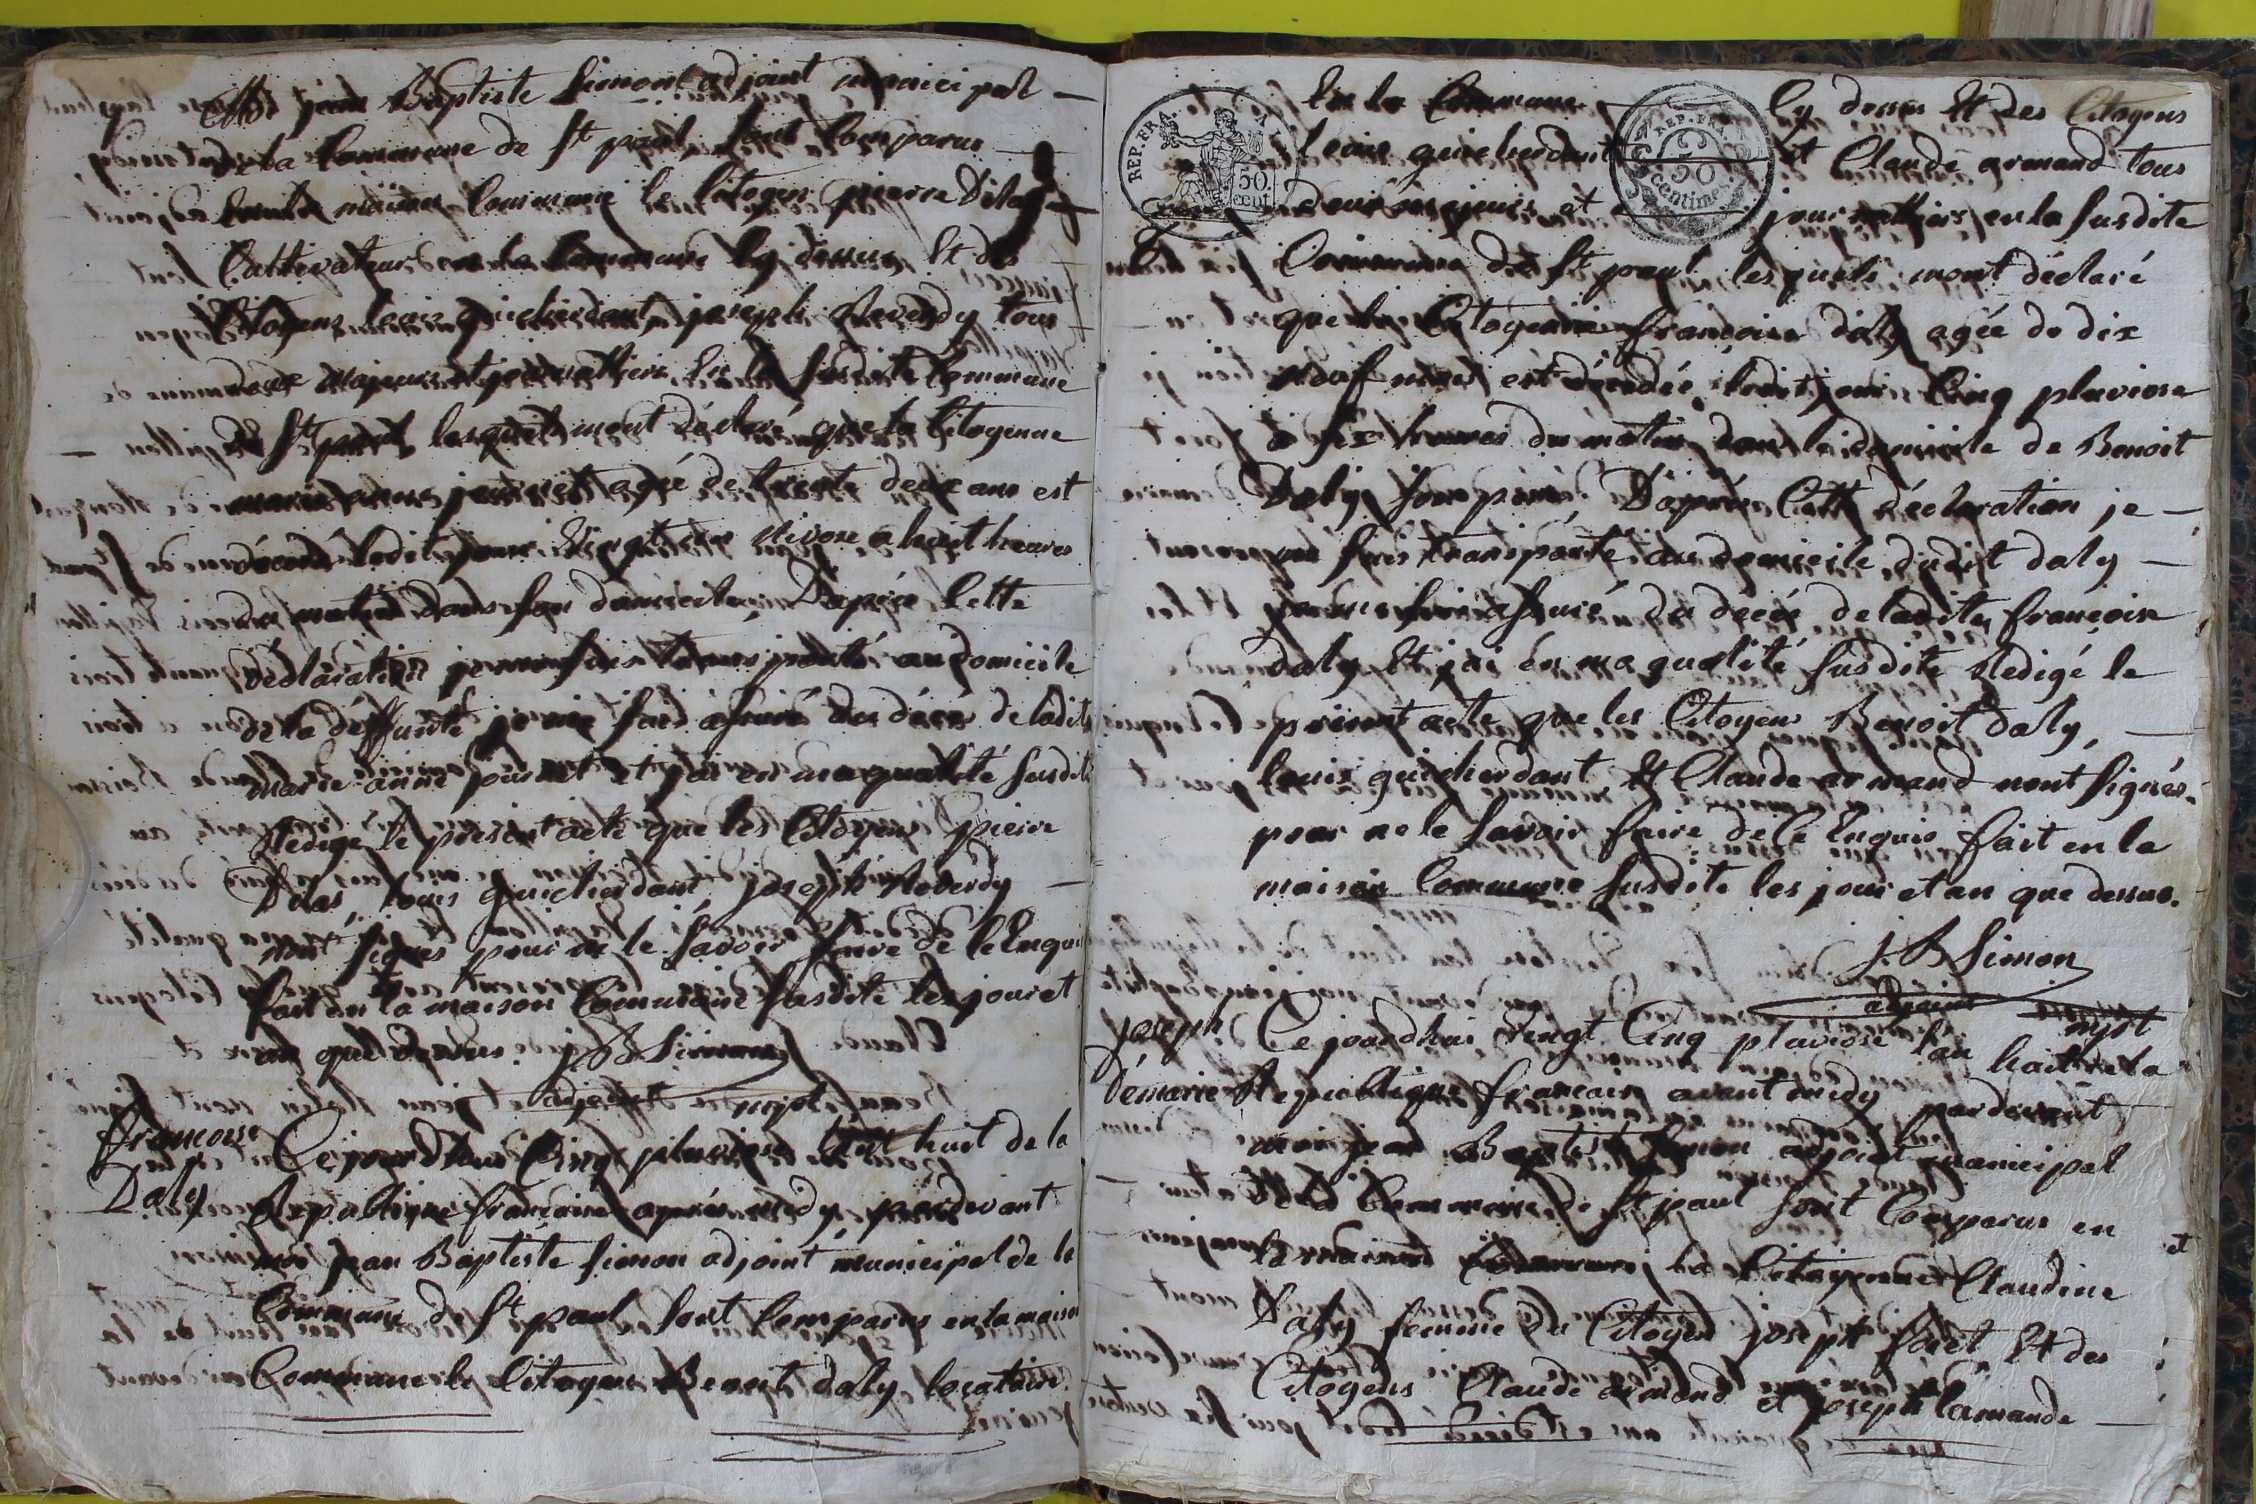 Moi jean Baptiste Simon adjoint municipal
de la Commune de St paul, sont Comparus
en la maison Commune le Citoyen pierre Dilas
Cultivateur en la Commune Cy dessus Et des
Citoyens louis quicherdant, joseph Reverdy tous
deux majeurs et journalliers En la susdite Commune
de St paul lesquels mont déclaré que la Citoyenne
marie anne journet agé de trente deux ans est
décedé ledit jour Vingt nivose a huit heures
du matin dans son domicile D'après Cette
déclaration je me suis transporté au domicile
de la deffunte je me suis assuré du décès de ladite
marie anne journet et jai en ma qualité susdite
Redigé le présent acte que les Citoyens pierre
Dilas, louis quicherdant joseph Reverdy
nont signés pour ne le savoir faire de Ce Enquis
fait en la maison Commune susdite les jour et
an que dessus. J B Simon
adjoint mpl
françoise
Daly
Cejourdhui Cinq pluviose lan huit de la
Republique francaise apres midy, pardevant
moi jean Baptiste Simon adjoint municipal de la
Commune de St paul sont Comparus en la maison
Commune le Citoyen Benoit daly locataire
REP. FRA.
50. cent.
REP. FRA.
50 centimes
En la Commune Cy dessus Et des Citoyens
louis quicherdant et Claude armand tous
deux majeurs et journalliers en la susdite
Commune de St paul lesquels mont déclaré
que la Citoyenne francoise daly agée de dix
neuf mois est décedée ledit jour Cinq pluviose
a six heures du matin dans le domicile de Benoit
Daly son père, D'après Cette déclaration je
me suis transporté au domicile dudit daly
je me suis assuré du décès de ladite francoise
daly Et jai en ma qualité susdite Redigé le
present acte que les Citoyens Benoit daly,
louis quicherdant Et Claude armand nont signés
pour ne le savoir faire de Ce Enquis fait en la
maison Commune susdite les jour et an que dessus.
J. B Simon
adjoint mpl
joseph
Démarie
Cejourdhui Vingt Cinq pluviose lan huit de la
Republique francaise avant midy pardevant
moi jean Baptiste Simon adjoint municipal
de la Commune de St paul sont Comparus en
la maison Commune la Citoyenne Claudine
Daly femme du Citoyen joseph foret Et des
Citoyens Claude armand et joseph lamande